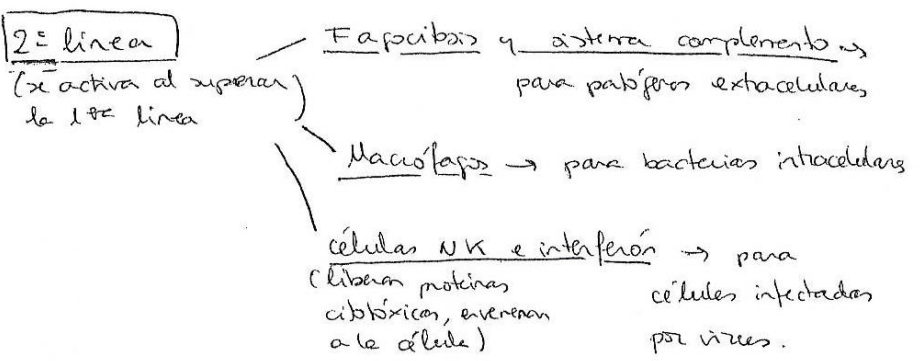 2ª línea
(se activa al superar
la 1ª línea)
Fagocitosis y sistema complemento →
para patógenos extracelulares
Macrófagos → para bacterias intracelulares
células NK e interferón → para
células infectadas
por virus.
(liberan proteínas
citotóxicas, envenenan
a la célula)